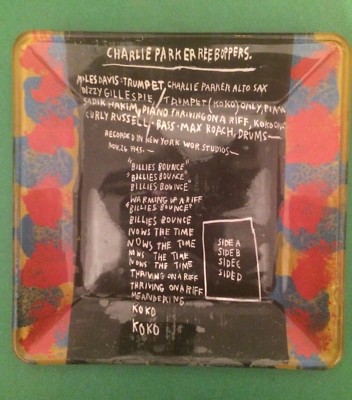 CHARLIE PARKER REE BOPPERS.
MILES DAVIS · TRUMPET, CHARLIE PARKER ALTO SAX
DIZZY GILLESPIE, / TRUMPET (KOKO) ONLY, PIANO
SADIK HAKIM, PIANO THRIVING ON A RIFF, KOKO ONLY
CURLY RUSSELL / BASS · MAX ROACH, DRUMS —
RECORDED IN NEW YORK WOR STUDIOS —
NOV. 26 1945. —
"BILLIES BOUNCE"
"BILLIES BOUNCE"
BILLIES BOUNCE"
"WARMING UP A RIFF
"BILLIES BOUNCE"
BILLIES BOUNCE
NOWS THE TIME
NOWS THE TIME
NOWS THE TIME
NOWS THE TIME
THRIVING ON A RIFF
THRIVING ON A RIFF
MEANDERING
KOKO
KOKO
SIDE A
SIDE B
SIDE C
SIDE D